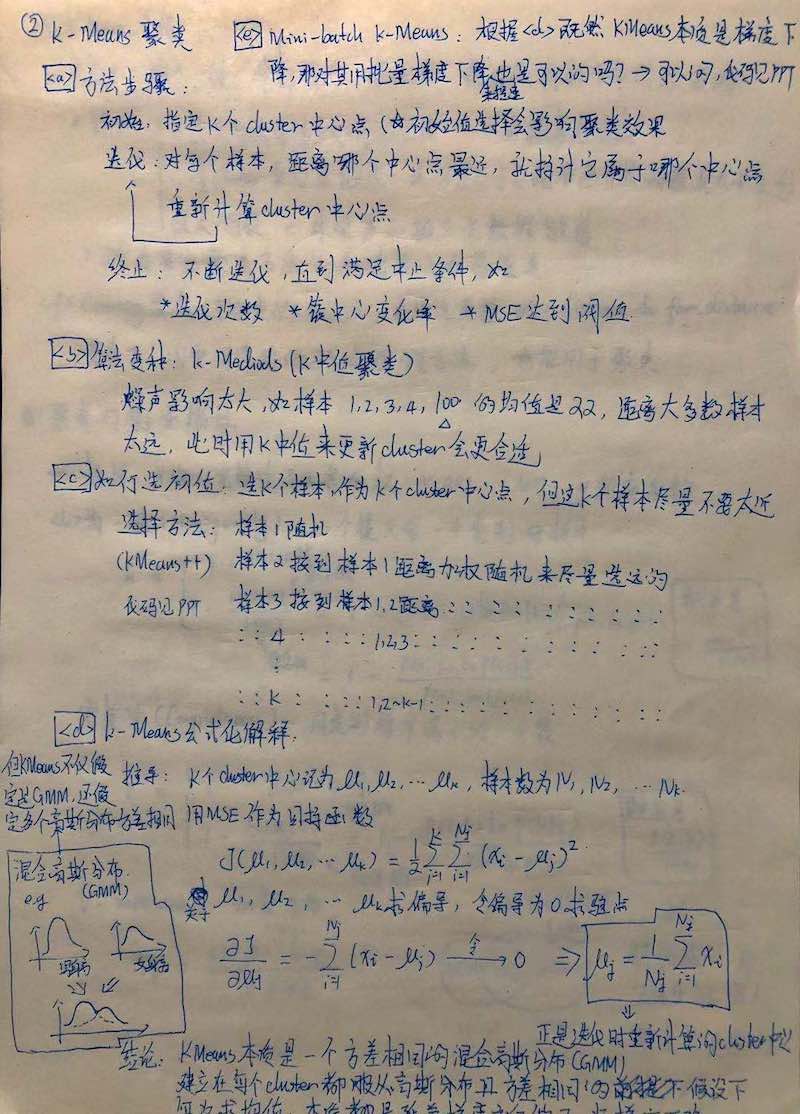 ② K-Means 聚类
<e> Mini-batch K-Means: 根据<d>既然KMeans本质是梯度下
降,那对其用批量梯度下降也是可以的吗? → 可以的,代码见PPT
<a> 方法步骤:
初始: 指定K个cluster中心点 (☆初始值选择会影响聚类效果
迭代: 对每个样本, 距离哪个中心点最近, 就将计它属于哪个中心点
重新计算cluster中心点
终止: 不断迭代, 直到满足中止条件, 如
*迭代次数 *簇中心变化率 *MSE达到阈值
<b> 算法变种: K-Mediods (K中值聚类)
噪声影响太大, 如样本 1,2,3,4,100 的均值是22, 距离大多数样本
太远, 此时用K中值来更新cluster会更合适
<c> 如何选初值: 选K个样本,作为K个cluster中心点, 但这K个样本尽量不要太近
选择方法: 样本1随机
(KMeans++) 样本2按到样本1距离加权随机来尽量选远的
代码见PPT 样本3按到样本1,2距离 : : : : : : : : : :
: : 4 : : : : 1,2,3 : : : : : : : : : : : :
:
: : K : : : : 1,2~K-1 : : : : : : : : : : : :
<d> K-Means公式化解释:
但KMeans不仅假
定是GMM, 还假
定多个高斯分布方差相同
推导: K个cluster中心记为 μ₁, μ₂, … μₖ, 样本数为 N₁, N₂, … Nₖ
用MSE作为目标函数
J(μ₁, μ₂, … μₖ) = 1/2 Σ_{i=1}^{K} Σ_{i=1}^{Nj} (xi − μj)²
混合高斯分布
(GMM)
e.g
关于 μ₁, μ₂, … μₖ 求偏导, 令偏导为0求驻点
∂J/∂μj = −Σ_{i=1}^{Nj} (xi − μj) —令→ 0 ⇒ μj = 1/Nj Σ_{i=1}^{Nj} xi
正是迭代时重新计算的cluster中心
结论: KMeans本质是一个方差相同的混合高斯分布(GMM)
建立在每个cluster都服从高斯分布且方差相同的 假设下